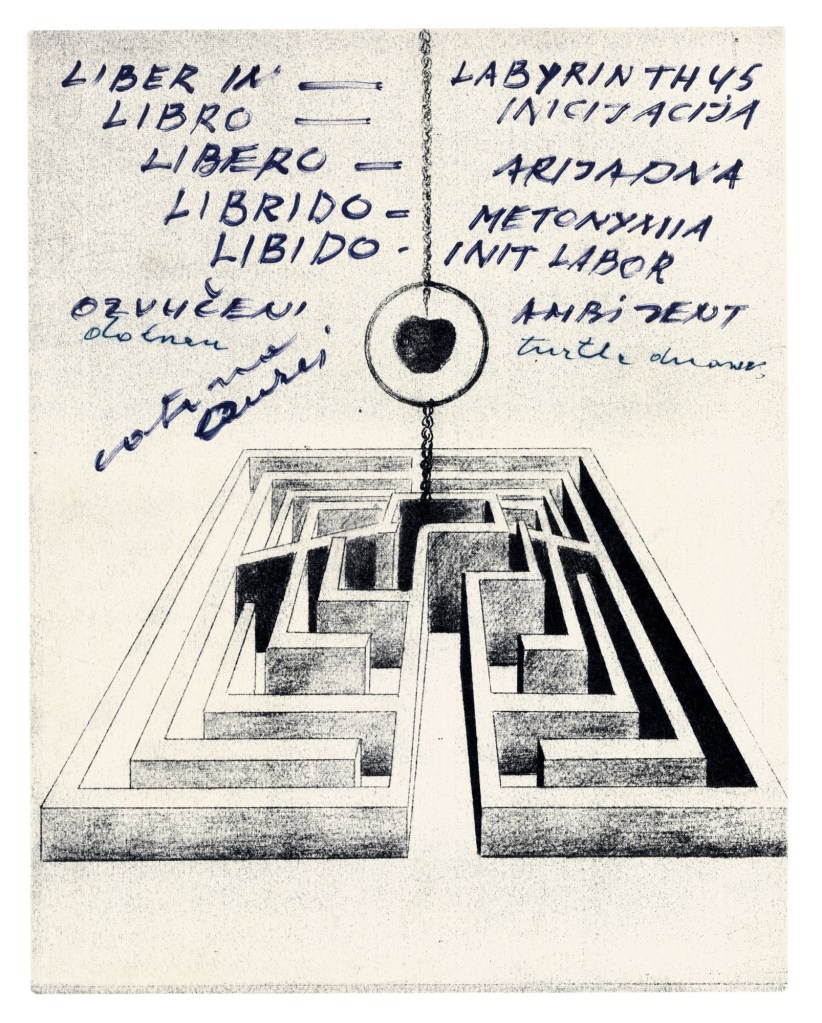 LIBER IN — LABYRINTHUS
LIBRO — INICIJACIJA
LIBERO — ARIJADNA
LIBRIDO = METONYMIIA
LIBIDO - INIT LABOR
OZVUČENI AMBIJENT
turtle